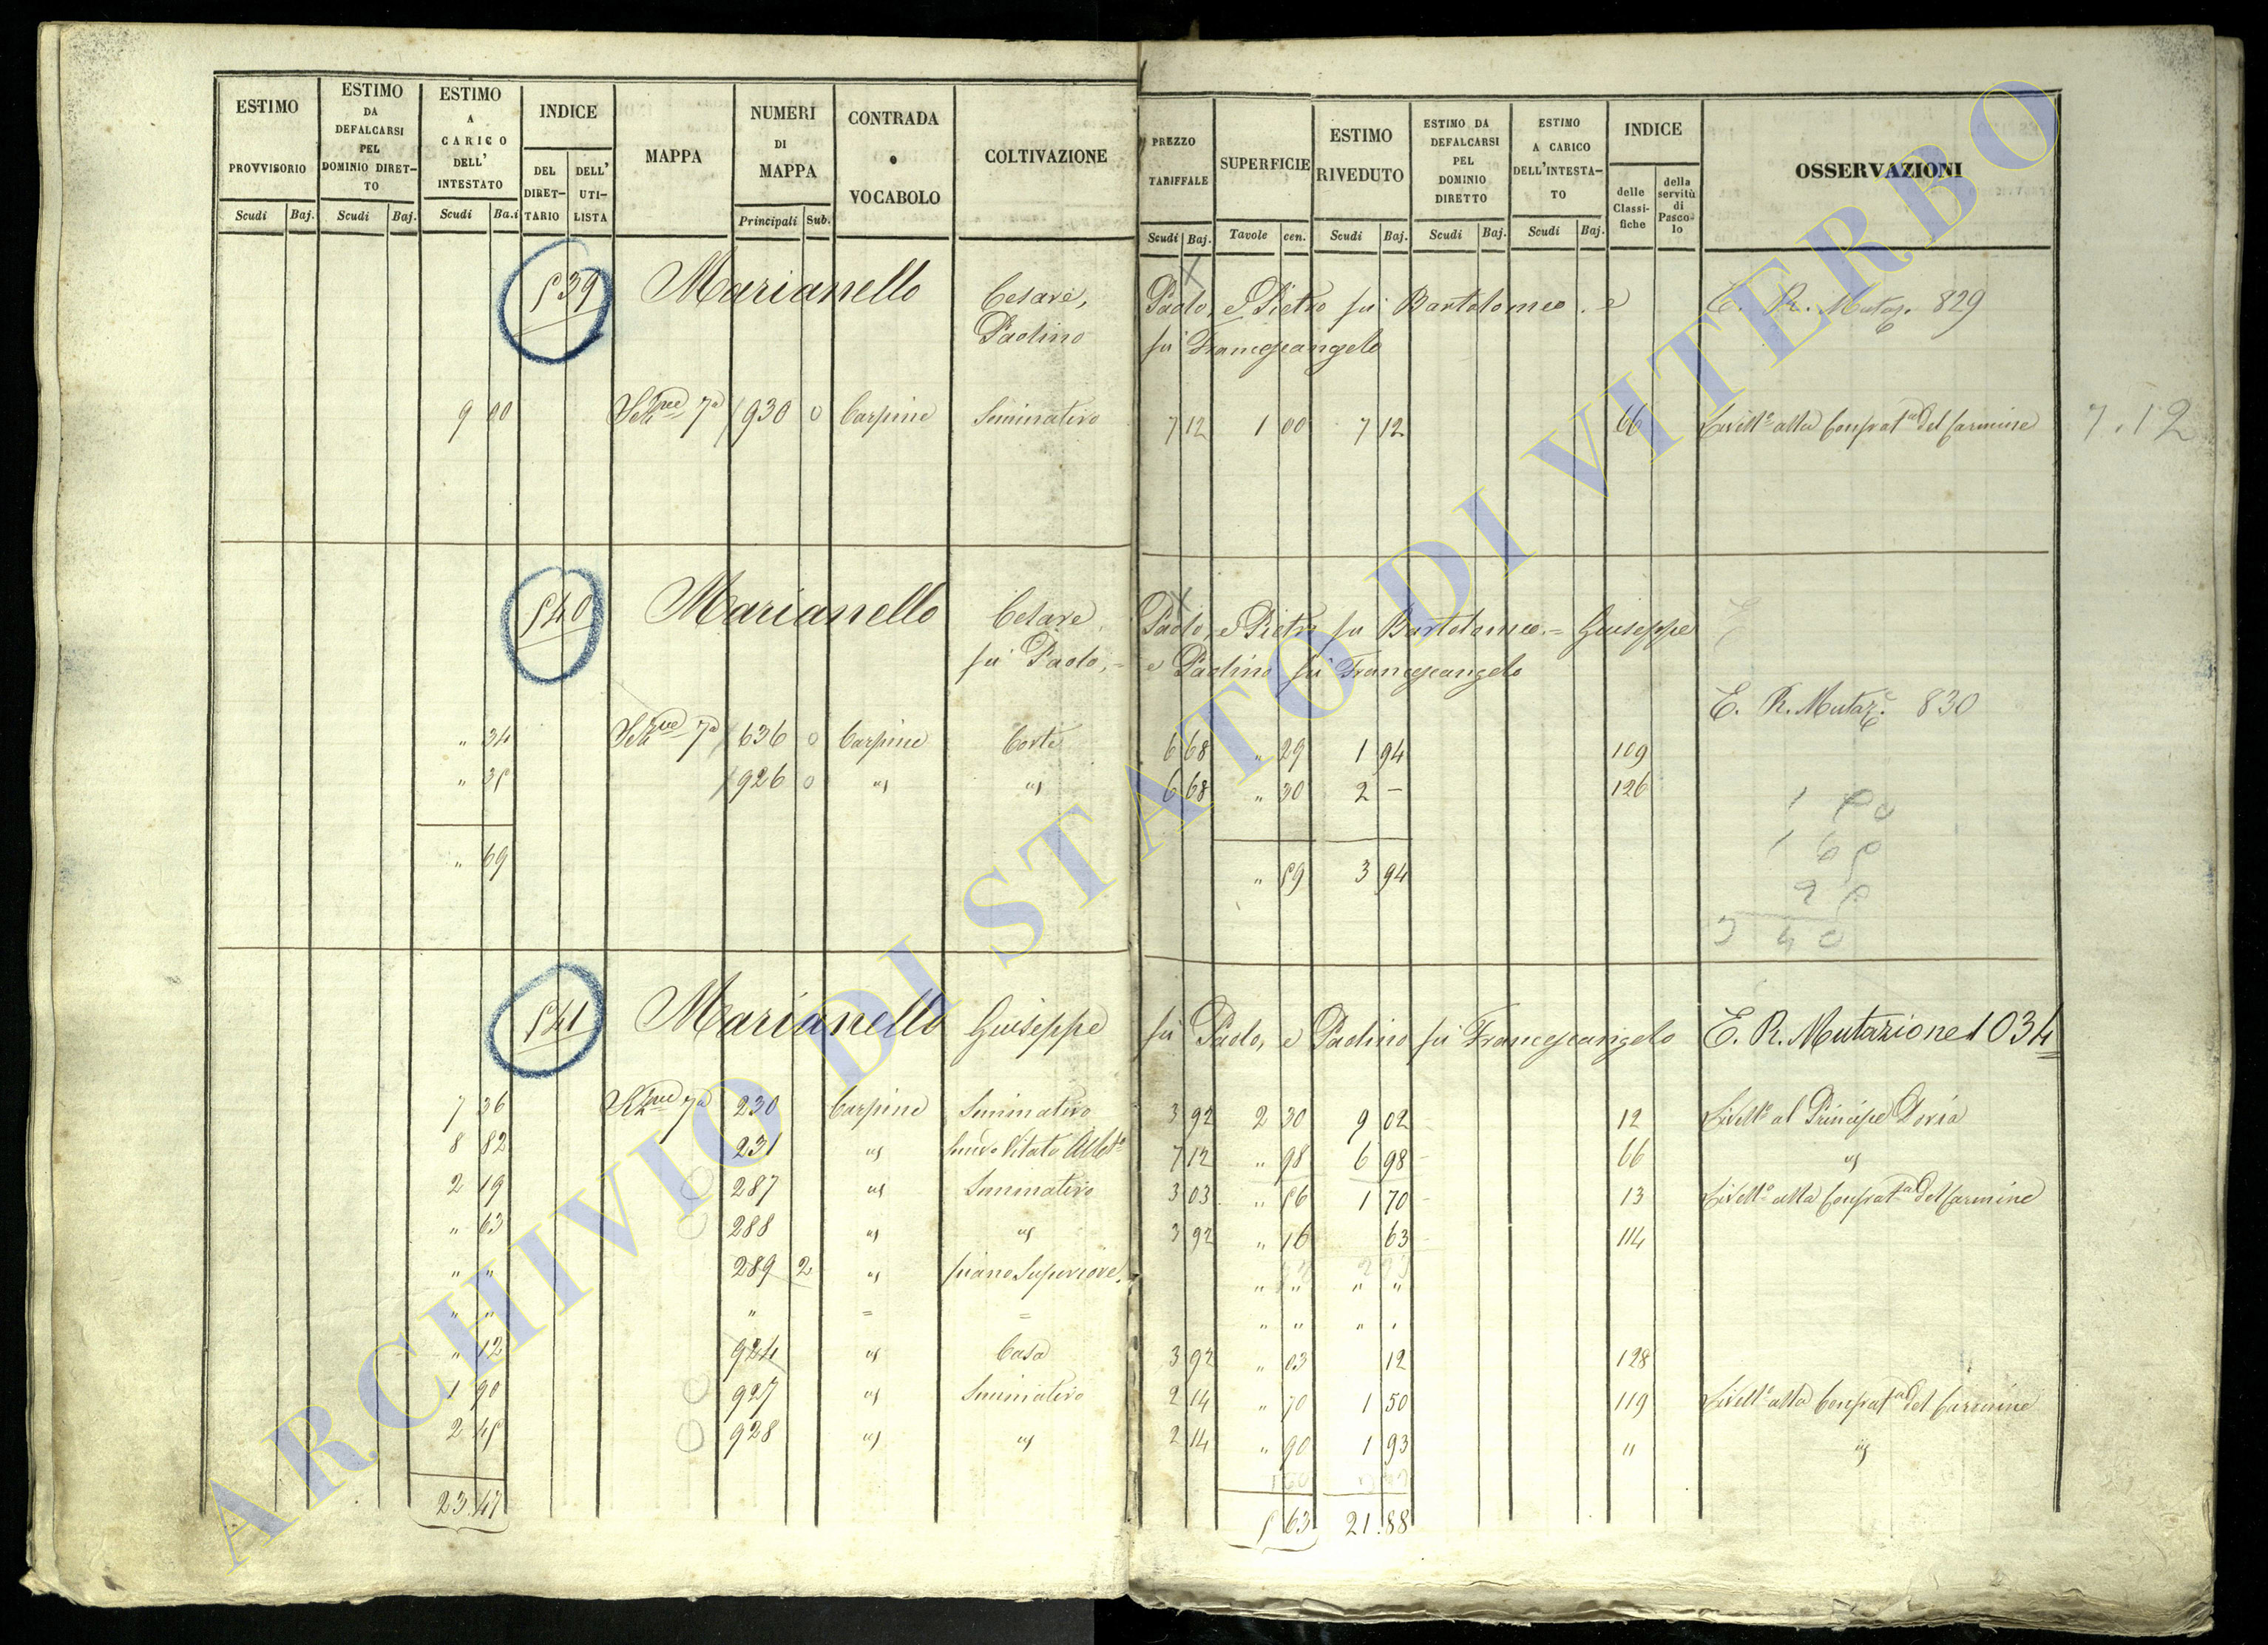 ESTIMO PROVVISORIO Scudi Baj.
ESTIMO DA DEFALCARSI PEL DOMINIO DIRET-TO Scudi Baj.
ESTIMO A CARICO DELL' INTESTATO Scudi Ba.i
INDICE DEL DIRET-TARIO DELL' UTI-LISTA
MAPPA
NUMERI DI MAPPA Principali Sub.
CONTRADA o VOCABOLO
COLTIVAZIONE
PREZZO TARIFFALE Scudi Baj.
SUPERFICIE Tavole cen.
ESTIMO RIVEDUTO Scudi Baj.
ESTIMO DA DEFALCARSI PEL DOMINIO DIRETTO Scudi Baj.
ESTIMO A CARICO DELL'INTESTA-TO Scudi Baj.
INDICE delle Classi-fiche della servitù di Pasco-lo
OSSERVAZIONI
539 Marianello Cesare, Paolo, e Pietro fu Bartolomeo . e E. R. Mutaz. 829
Paolino fu Francescangelo
9 00 Sezne 7a 930 0 Carpine Seminativo 7 12 1 00 7 12 66 Livello alla Confrata del Carmine 7.12
540 Marianello Cesare, Paolo, e Pietro fu Bartolomeo = Giuseppe
fu Paolo, = e Paolino fu Francescangelo
E. R. Mutaze 830
" 34 Sezne 7a 636 0 Carpine Corte 6 68 " 29 1 94 109
" 35 926 0 " " 6 68 " 30 2 – 126
" 69 " 59 3 94
541 Marianello Giuseppe fu Paolo, e Paolino fu Francescangelo E. R. Mutazione 1034
7 36 Sezne 7a 230 Carpine Seminativo 3 92 2 30 9 02 12 Livello al Principe Doria
8 82 231 " Semivo Vitato Albto 7 12 " 98 6 98 66 "
2 19 287 " Seminativo 3 03 " 56 1 70 13 Livello alla Confrata del Carmine
" 63 288 " " 3 92 " 16 63 114
" " 289 2 " piano Superiore " " " "
" " " = = " " " "
" 12 924 " Casa 3 92 " 03 12 128
1 90 927 " Seminativo 2 14 " 70 1 50 119 Livello alla Confrata del Carmine
2 45 928 " " 2 14 " 90 1 93 " "
23.47 5 63 21.88
ARCHIVIO DI STATO DI VITERBO